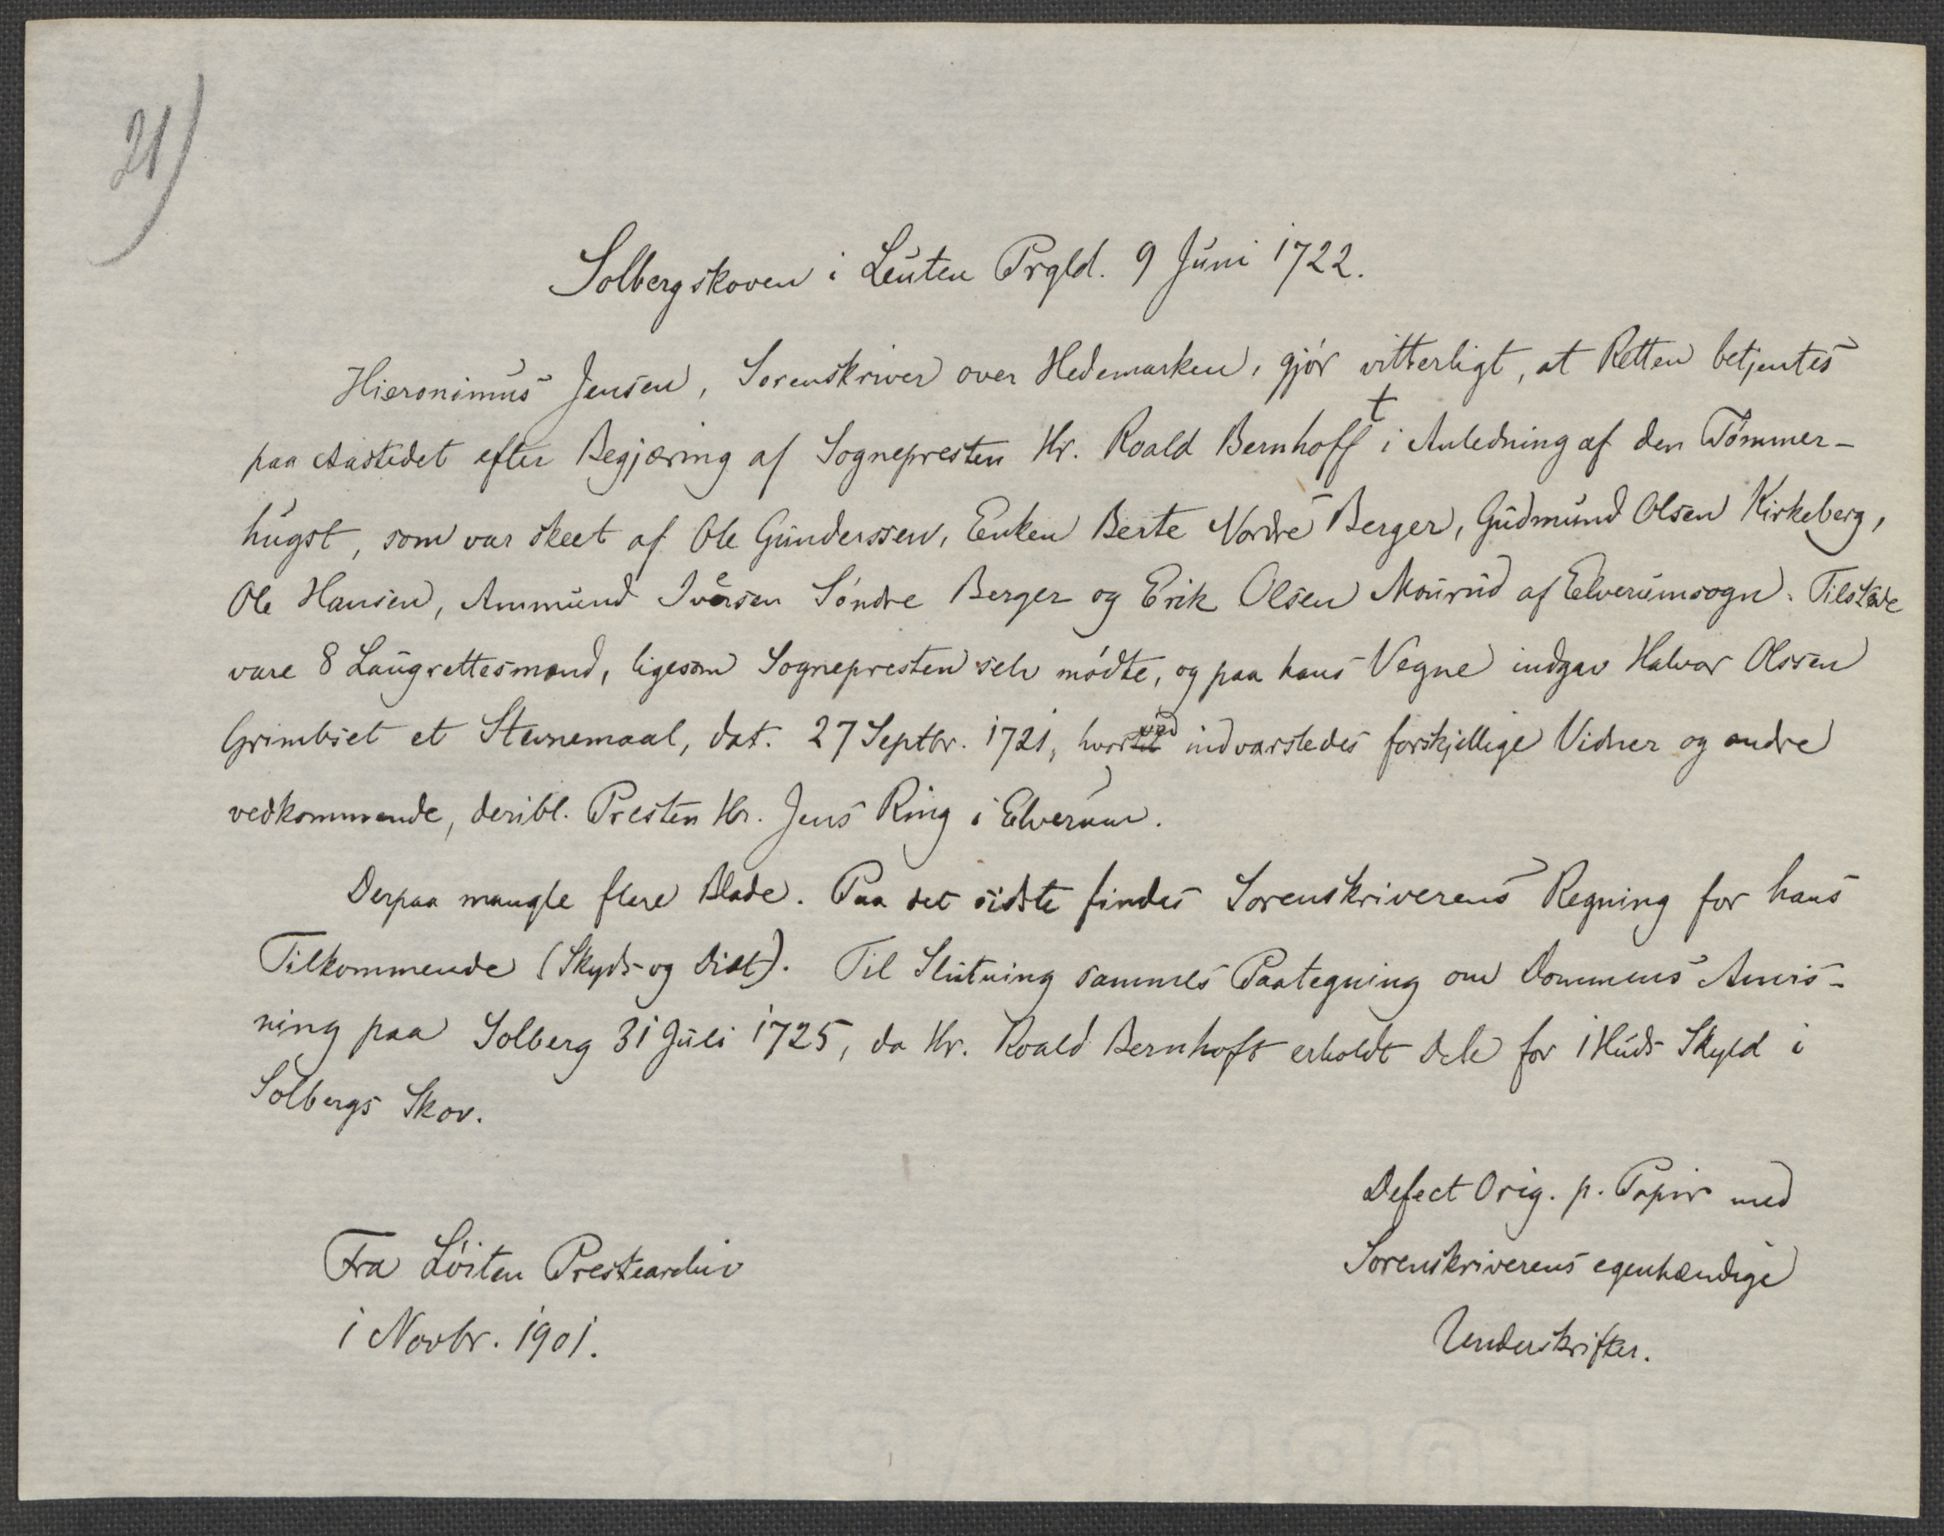 21)
Solbergskoven i Leuten Prgld. 9 Juni 1722.
Hieronimus Jensen, Sorenskriver over Hedemarken, gjør vitterligt, at Retten betjentes
paa Aastedet efter Begjæring af Sognepresten Hr. Roald Bernhoft i Anledning af den Tømmer-
hugst, som var skeet af Ole Gunderssen, Enken Berte Nordre Berger, Gudmund Olsen Kirkeberg,
Ole Hansen, Ammund Iversen Søndre Berger og Erik Olsen Mourud af Elverumsogn. Tilstede
vare 8 Laugrettesmænd, ligesom Sognepresten selv mødte, og paa hans Vegne indgav Halvor Olssen
Grimbset et Stevnemaal, dat. 27 Septbr. 1721, hvorved indvarsledes forskjellige Vidner og andre
vedkommende, deribl. Presten Hr. Jens Ring i Elverum.
Derpaa mangle flere Blade. Paa det sidste findes Sorenskriverens Regning for hans
Tilkommende (Skyds- og Diæt). Til Slutning sammes Paategning om Dommens Anvis-
ning paa Solberg 31 Juli 1725, da Hr. Roald Bernhoft erholdt Dele for 1 Huds Skyld i
Solbergs Skov.
Defect Orig. p. Papir med
Sorenskriverens egenhændige
Underskrifter.
Fra Løiten Prestearchiv
i Novbr. 1901.